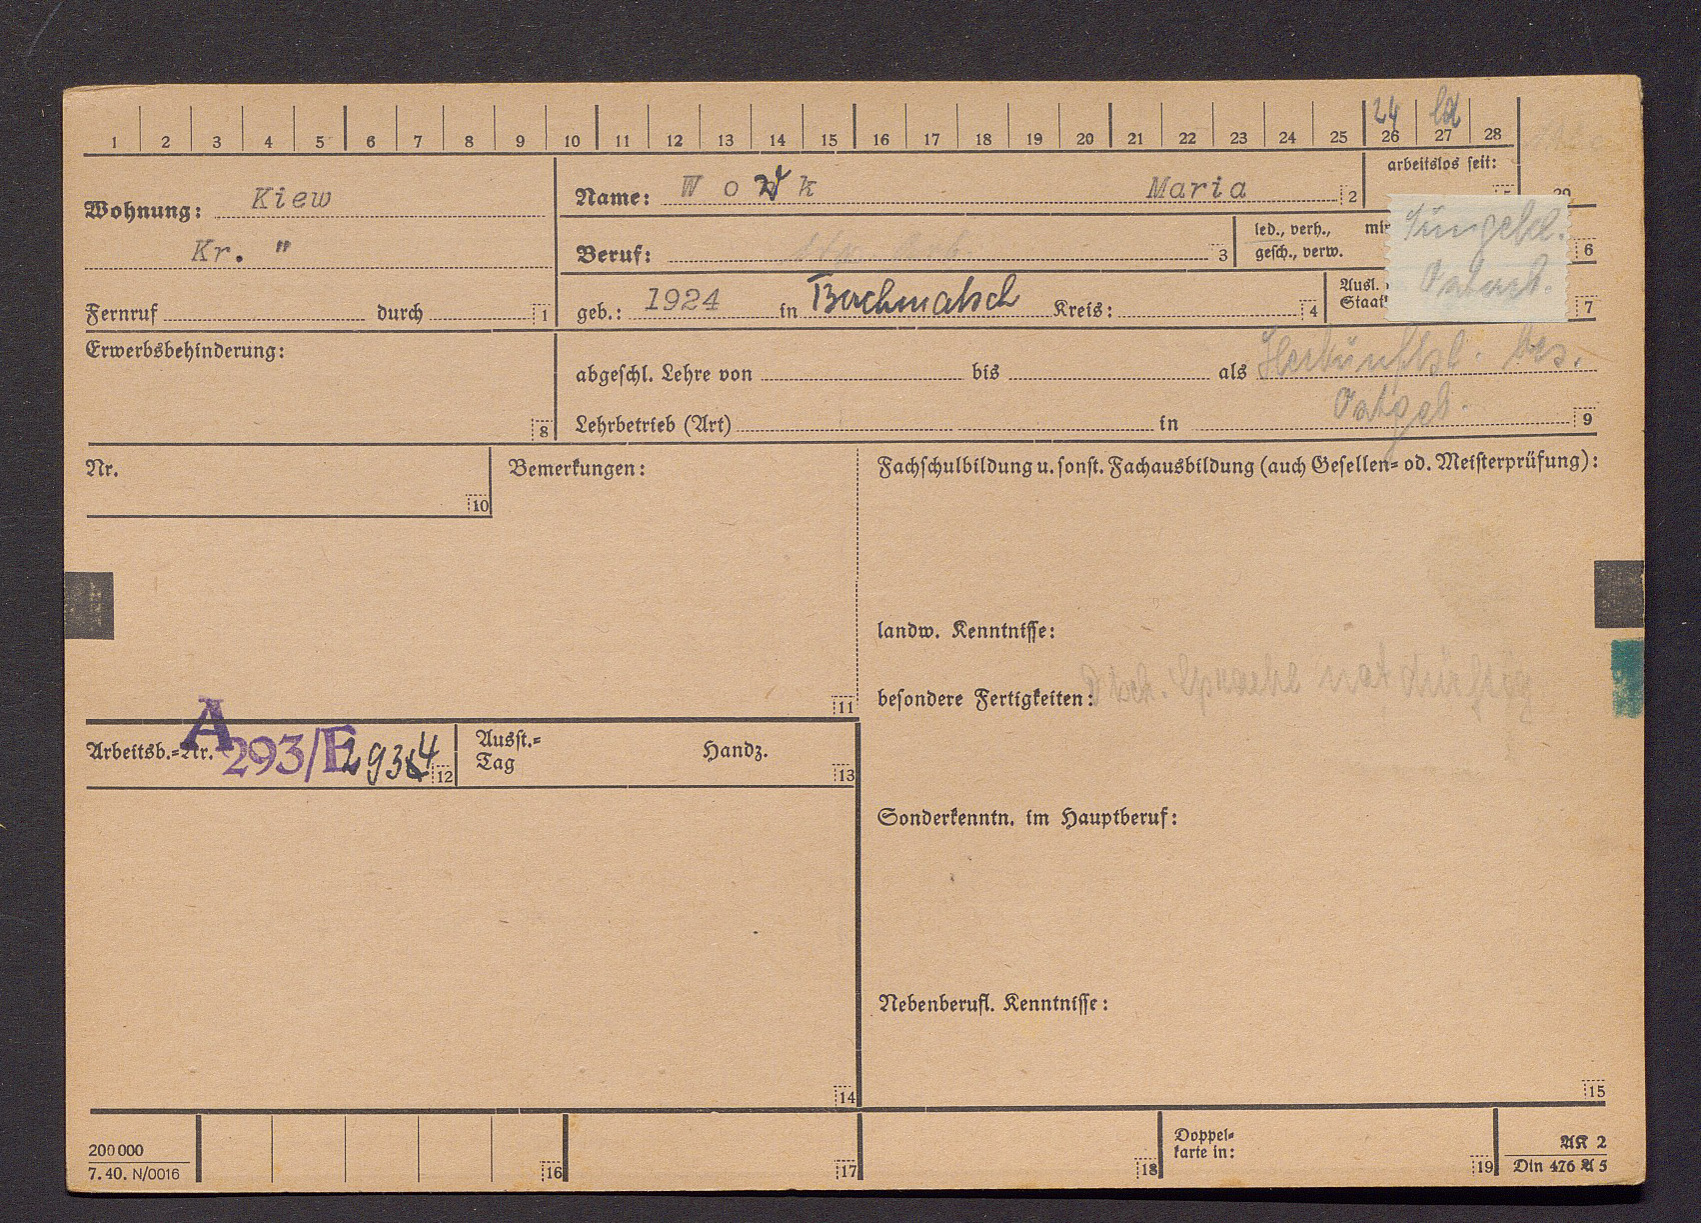 1 2 3 4 5 6 7 8 9 10 11 12 13 14 15 16 17 18 19 20 21 22 23 24 25 26 27 28
24
arbeitslos seit:
Wohnung: Kiew
Kr. "
Name: Wowk Maria 2
Beruf: 3
led., verh.,
gesch., verw.
6
Fernruf durch 1
geb.: 1924 in Bachmatsch Kreis: 4
Ausl.
Staat
7
Ungekl.
Ostarb.
Erwerbsbehinderung:
8
abgeschl. Lehre von bis als Herkunftsl. bes.
Ostgeb.
Lehrbetrieb (Art) in 9
Nr.
10
Bemerkungen:
11
Fachschulbildung u. sonst. Fachausbildung (auch Gesellen- od. Meisterprüfung):
landw. Kenntnisse:
besondere Fertigkeiten: Dtsch. Sprache notdürftig
Arbeitsb.-Nr. A 293/E 2934 12
Ausst.-
Tag
Handz.
13
Sonderkenntn. im Hauptberuf:
Nebenberufl. Kenntnisse:
14
15
200 000
7. 40. N/0016
16
17
18
Doppel-
karte in:
19
AK 2
Din 476 A 5